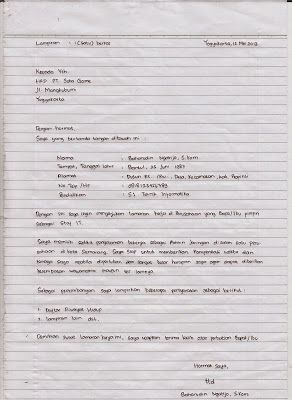 Lampiran : 1 (Satu) berkas Yogyakarta, 12 Mei 2013
Kepada Yth.
HRD PT. Soto Game
Jl. Mangkubumi
Yogyakarta
Dengan hormat,
Saya yang bertanda tangan dibawah ini :
Nama : Baharudin Ngatijo, S.Kom
Tempat, Tanggal lahir : Bantul, 25 Juni 1987
Alamat : Dusun RT /RW.. , Desa, Kecamatan, Kab, Provinsi
No Tlp /Hp :
Pendidikan : S1 Teknik Informatika
Dengan ini saya ingin mengajukan lamaran kerja di Perusahaan yang Bapak/Ibu pimpin
sebagai Staf IT.
Saya memiliki sedikit pengalaman bekerja sebagai Admin Jaringan di salah satu peru-
sahaan di kota Semarang. Saya siap untuk memberikan kontribusi waktu dan
tenaga saya apabila diperlukan dan sangat besar harapan saya agar dapat diberikan
kesempatan wawancara maupun tes lainnya.
Sebagai pertimbangan saya lampirkan beberapa persyaratan sebagai berikut :
1. Daftar Riwayat Hidup
2. lampiran lain dst.
Demikian surat lamaran kerja ini, saya ucapkan terima kasih atas perhatian Bapak/Ibu
Hormat Saya,
ttd
Baharudin Ngatijo, S.Kom